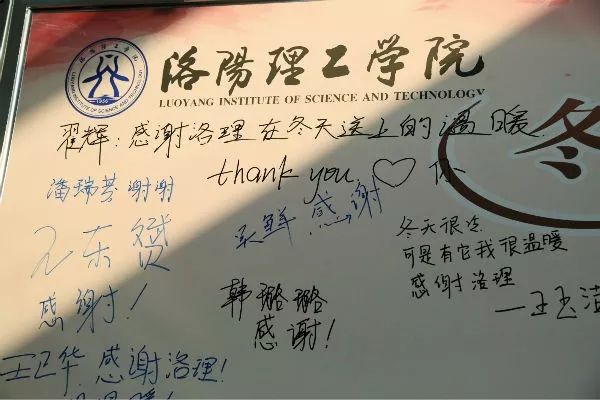 洛阳理工学院
LUOYANG INSTITUTE OF SCIENCE AND TECHNOLOGY
洛阳理工学院
LUOYANG INSTITUTE OF SCIENCE AND TECHNOLOGY
1956
翟辉:感谢洛理在冬天送上的温暖
thank you ♡ 你
冬
潘瑞芳 谢谢
鲜 感谢
冬天很冷
可是有它我很温暖
感谢洛理
—王玉洁
东赟
感谢!
韩璐璐
感谢!
王卫华 感谢洛理!